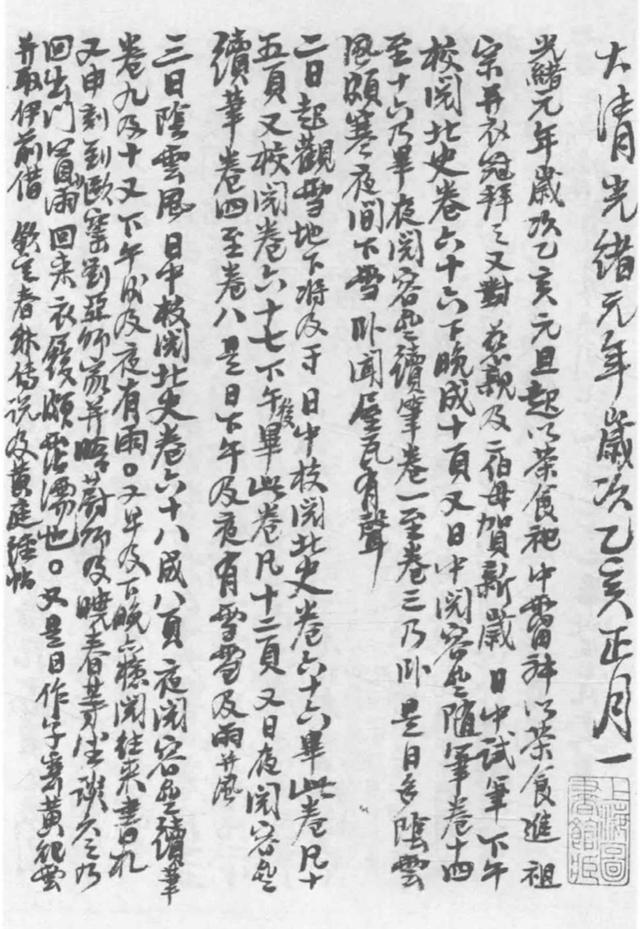 大清光緒元年歲次乙亥正月一
光緒元年歲次乙亥元旦起以茶食祀中霤神以茶食進 祖
宗并衣冠拜之又對 慈親及二伯母賀新歲 日中試筆 下午
校閱北史卷六十六下晚成十頁又日中閱容齋隨筆卷十四
至十六乃畢夜閱容齋續筆卷一至卷三乃卧 是日多陰雲
風頗寒夜間下雪 卧聞屋瓦有聲
二日起觀雪地下將及寸 日中校閱北史卷六十六畢此卷凡十
五頁又校閱卷六十七下午後畢此卷凡十二頁 又日夜閱容齋
續筆卷四至卷八 是日下午及夜有雪雪及雨并風
三日陰雲風 日中校閱北史卷六十八成八頁 夜閱容齋續筆
卷九及十 又下午及夜有雨。又早及下晚閱往來書札
又申刻到劉亞師家并晤蔚師及曉春等坐談久之乃
回出門冒雨回來衣履頗霑濡也。又是日作字寄黃
并取伊前借 欽定春秋傳說及黃庭經帖
上海圖
書館藏